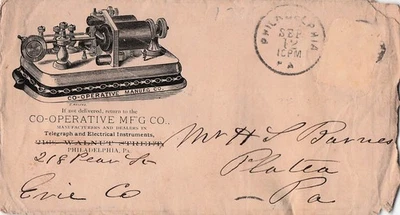 CO-OPERATIVE MANUFG CO.
If not delivered, return to the
CO-OPERATIVE M'F'G CO.,
MANUFACTURERS AND DEALERS IN
Telegraph and Electrical Instruments,
WALNUT STREET,
PHILADELPHIA, Pa.
218 Pear St
PHILADELPHIA
SEP
12
10PM
PA
Mr H S Barnes
Platea
Erie Co
Pa